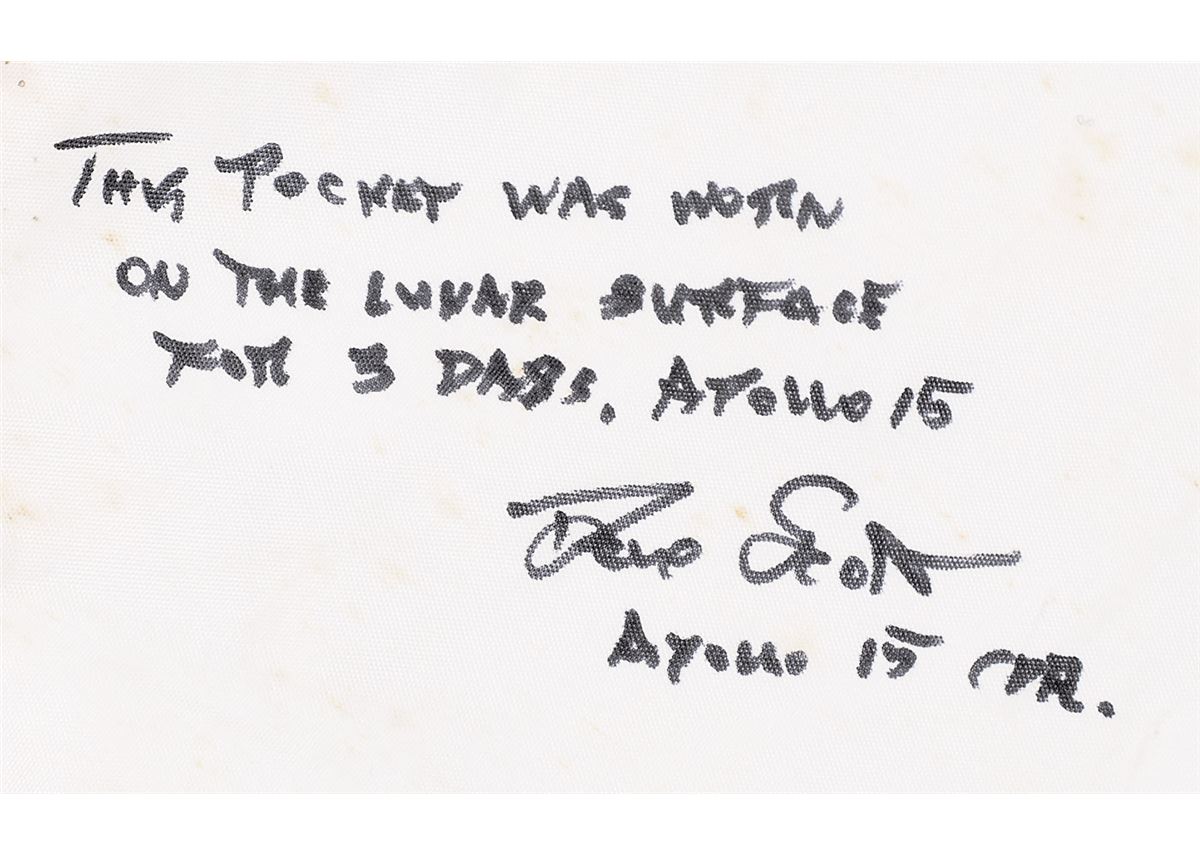 THIS POCKET WAS WORN
ON THE LUNAR SURFACE
FOR 3 DAYS. APOLLO 15
Dave Scott
APOLLO 15 CDR.